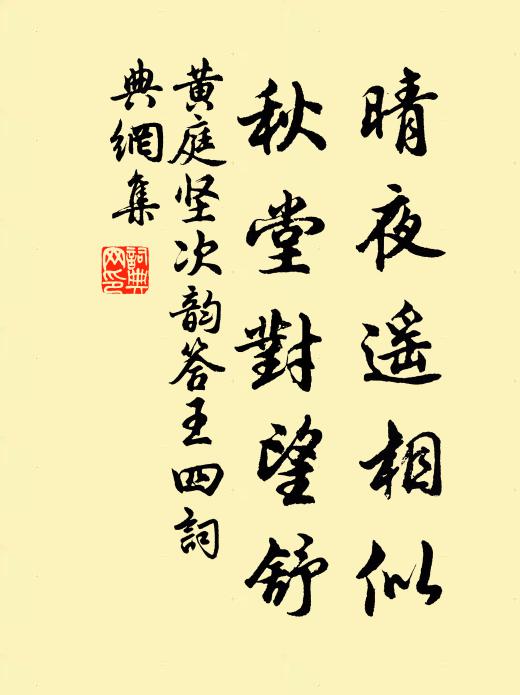 晴夜遥相似
秋堂對望舒
黄庭坚次韵答王四詞
典網集
詞典网印